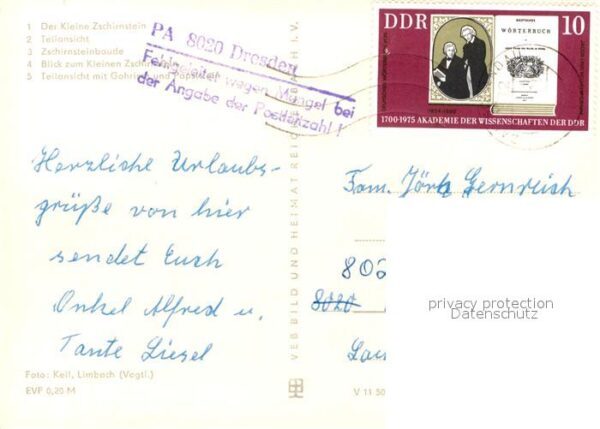 1 Der Kleine Zschirnstein
2 Teilansicht
3 Zschirnsteinbaude
4 Blick zum Kleinen
5 Teilansicht mit
PA 8020 Dresden
Fehlgeleitet wegen Mangel bei
der Angabe der Postleitzahl!
DDR 10
WÖRTERBUCH
1700-1975 AKADEMIE DER WISSENSCHAFTEN DER DDR
Herzliche Urlaubs-
grüße von hier
sendet Euch
Onkel Alfred u.
Tante Liesel
Foto: Keil, Limbach (Vogtl.)
EVP 0,20 M
VEB BILD UND HEIMAT REICHENBACH I.V.
Fam. Jörg Gernreich
8020
privacy protection
Datenschutz
V 11 50